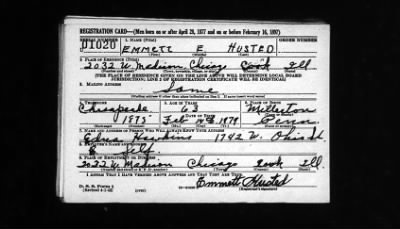 REGISTRATION CARD—(Men born on or after April 28, 1877 and on or before February 16, 1897)
SERIAL NUMBER 1. NAME (Print) ORDER NUMBER
U1020 EMMETT E HUSTED
2. PLACE OF RESIDENCE (Print)
2032 W. Madison Chicago Cook Ill
[THE PLACE OF RESIDENCE GIVEN ON THE LINE ABOVE WILL DETERMINE LOCAL BOARD
JURISDICTION; LINE 2 OF REGISTRATION CERTIFICATE WILL BE IDENTICAL]
3. MAILING ADDRESS
Same
4. TELEPHONE 5. AGE IN YEARS 6. PLACE OF BIRTH
Chesapeake 63
1875 Feb 1879 Penn
7. NAME AND ADDRESS OF PERSON WHO WILL ALWAYS KNOW YOUR ADDRESS
Edna 1742 W. Ohio St
8. EMPLOYER'S NAME AND ADDRESS
Self
9. PLACE OF EMPLOYMENT OR BUSINESS
2032 W. Madison Chicago Cook Ill.
I AFFIRM THAT I HAVE VERIFIED ABOVE ANSWERS AND THAT THEY ARE TRUE.
D. S. S. Form 1
Emmett Husted